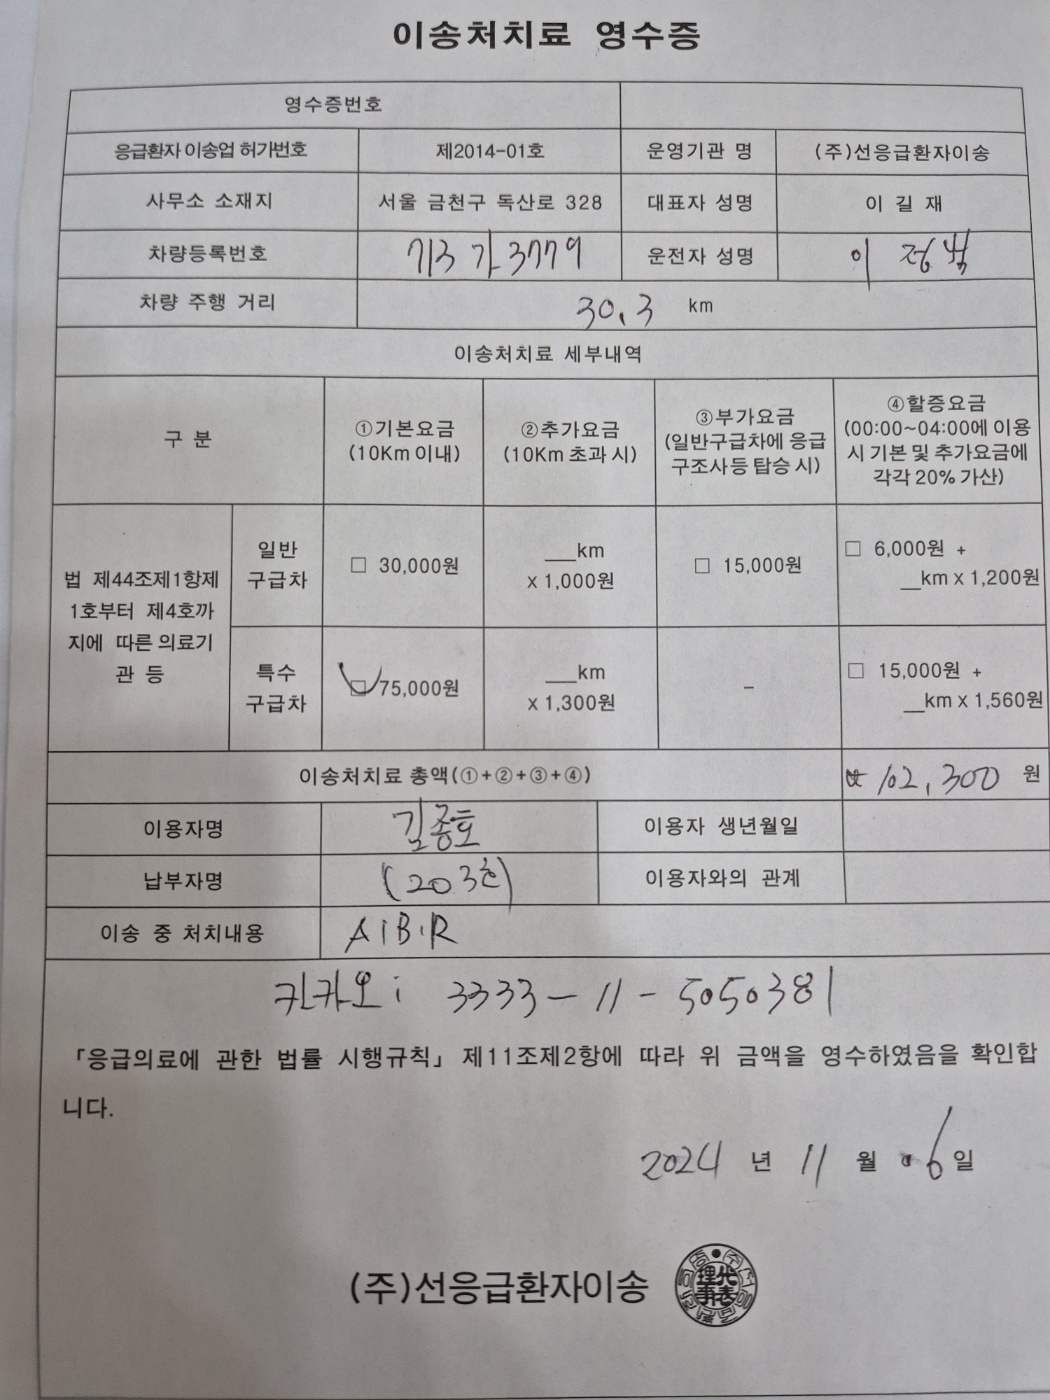 이송처치료 영수증
영수증번호
응급환자 이송업 허가번호 제2014-01호 운영기관 명 (주)선응급환자이송
사무소 소재지 서울 금천구 독산로 328 대표자 성명 이 길 재
차량등록번호 가 3779 운전자 성명 이 정범
차량 주행 거리 30.3 km
이송처치료 세부내역
구 분
①기본요금
(10Km 이내)
②추가요금
(10Km 초과 시)
③부가요금
(일반구급차에 응급
구조사등 탑승 시)
④할증요금
(00:00~04:00에 이용
시 기본 및 추가요금에
각각 20% 가산)
법 제44조제1항제
1호부터 제4호까
지에 따른 의료기
관 등
일반
구급차
□ 30,000원
__km
x 1,000원
□ 15,000원
□ 6,000원 +
__km x 1,200원
특수
구급차
□ 75,000원
__km
x 1,300원
-
□ 15,000원 +
__km x 1,560원
이송처치료 총액(①+②+③+④) ₩ 102,300 원
이용자명 김종호 이용자 생년월일
납부자명 (203호) 이용자와의 관계
이송 중 처치내용 A.B.R
카카오: 3333-11-5050381
「응급의료에 관한 법률 시행규칙」 제11조제2항에 따라 위 금액을 영수하였음을 확인합
니다.
2024 년 11 월 6 일
(주)선응급환자이송